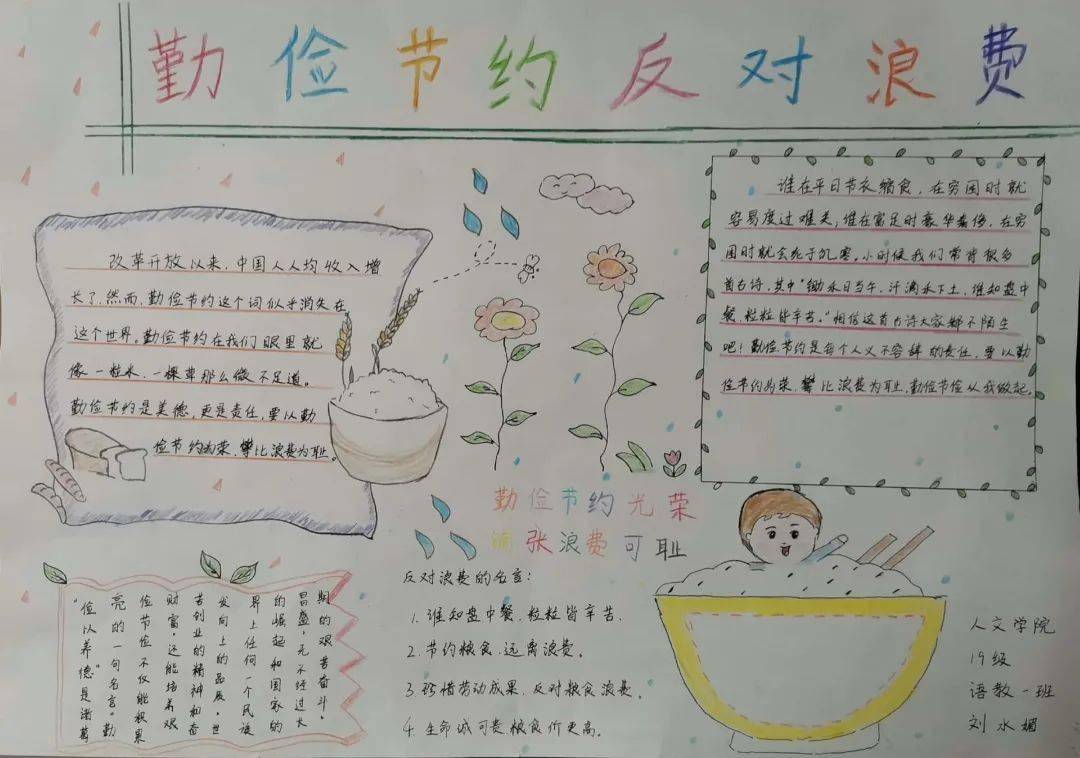 勤俭节约反对浪费
改革开放以来,中国人人均收入增
长了,然而,勤俭节约这个词似乎消失在
这个世界。勤俭节约在我们眼里就
像一粒米,一棵草那么微不足道。
勤俭节约是美德,更是责任,要以勤
俭节约为荣,攀比浪费为耻。
谁在平日节衣缩食,在穷困时就
容易度过难关,谁在富足时豪华奢侈,在穷
困时就会死于饥寒。小时候我们常背很多
首古诗,其中"锄禾日当午,汗滴禾下土,谁知盘中
餐,粒粒皆辛苦。"相信这首古诗大家都不陌生
吧!勤俭节约是每个人义不容辞的责任,要以勤
俭节约为荣,攀比浪费为耻,勤俭节俭从我做起。
勤俭节约光荣
铺张浪费可耻
“俭以养德”是诸葛
亮的一句名言。勤
俭节俭不仅能积累
财富,还能培养艰
苦创业的精神和奋
发向上的品质,世
界上任何一个民族
的崛起和国家的
昌盛,无不经过长
期的艰苦奋斗。
反对浪费的名言:
1.谁知盘中餐,粒粒皆辛苦。
2.节约粮食,远离浪费。
3.珍惜劳动成果,反对粮食浪费。
4.生命诚可贵,粮食价更高。
人文学院
19级
语教一班
刘水媚